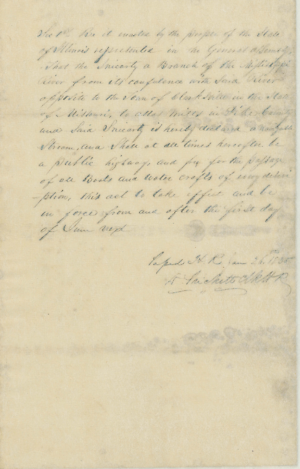 Sec 1st Be it enacted by the people of the State
of Illinois represented in the General Assembly
That the Sanicarty a Branch of the Mississippi
River from its confluence with said River
opposite to the Town of in the State
of Missouri to Mills in Pike County
and Said Sanicarty is hereby declared a navigable
Stream, and shall at all times hereafter be
a public highway and free for the passage
of all Boats and water crafts of every discri
-ption, this act to take effect and be
in force from and after the first day
of June next
H. R. 26th